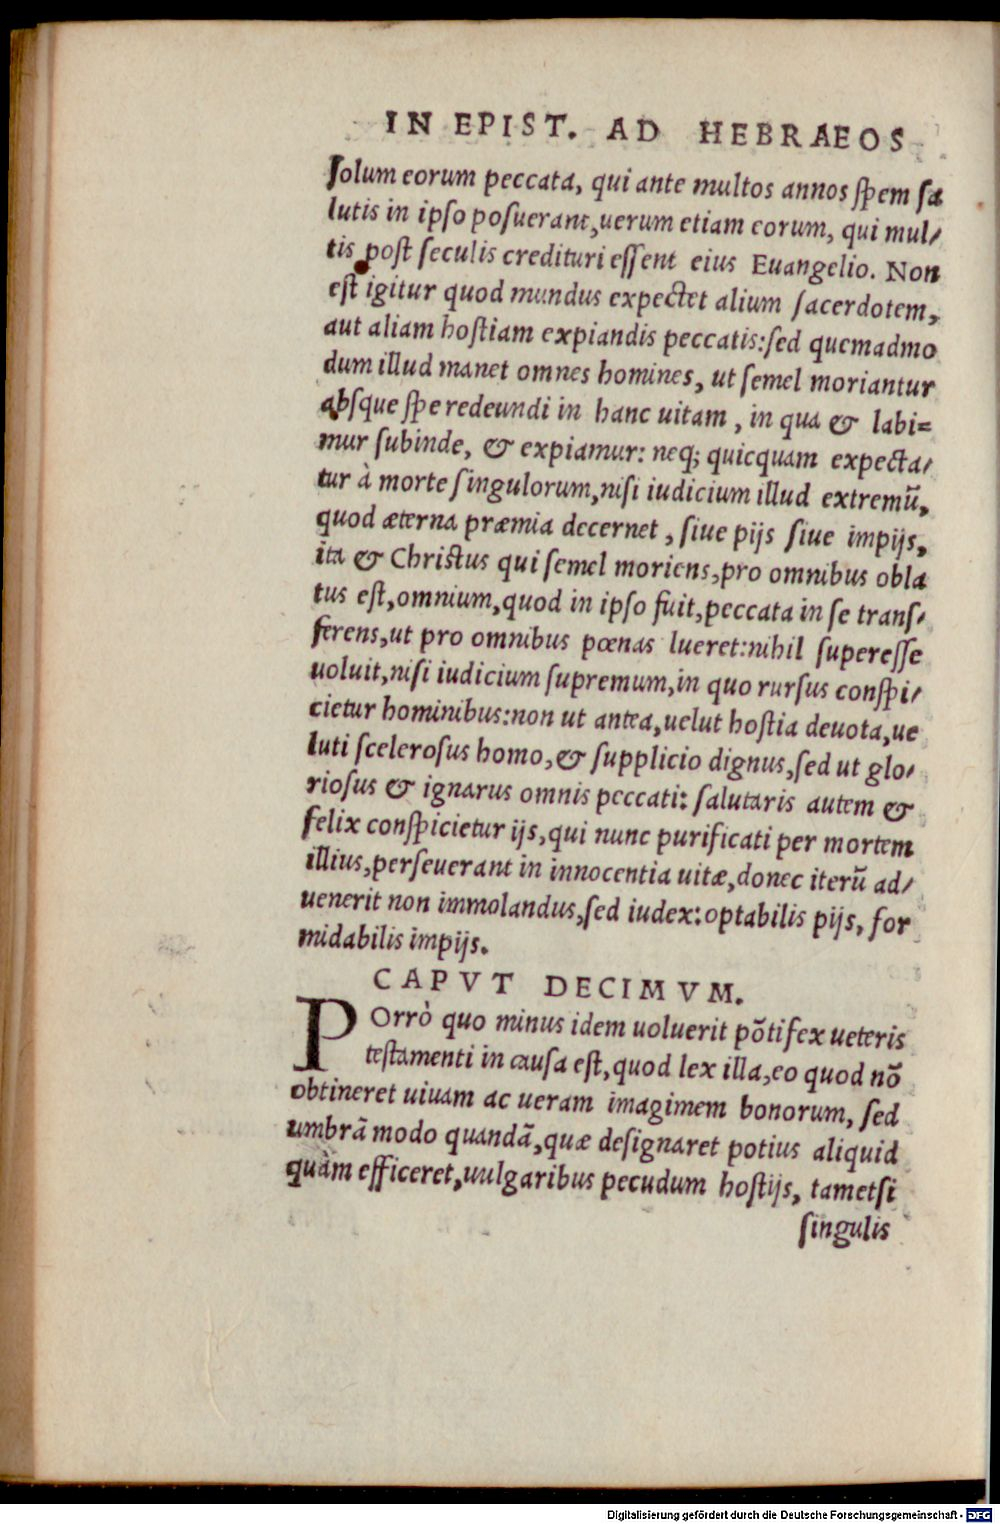 IN EPIST. AD HEBRAEOS
ſolum eorum peccata, qui ante multos annos ſpem ſa
lutis in ipſo poſuerant, uerum etiam eorum, qui mul⸗
tis poſt ſeculis credituri eſſent eius Euangelio. Non
eſt igitur quod mundus expectet alium ſacerdotem,
aut aliam hoſtiam expiandis peccatis: ſed quemadmo
dum illud manet omnes homines, ut ſemel moriantur
abſque ſpe redeundi in hanc uitam, in qua & labi⸗
mur ſubinde, & expiamur: neq; quicquam expecta⸗
tur à morte ſingulorum, niſi iudicium illud extremũ,
quod æterna præmia decernet, ſiue pijs ſiue impijs,
ita & Chriſtus qui ſemel moriens, pro omnibus obla
tus eſt, omnium, quod in ipſo fuit, peccata in ſe tranſ⸗
ferens, ut pro omnibus pœnas lueret: nihil ſupereſſe
uoluit, niſi iudicium ſupremum, in quo rurſus conſpi⸗
cietur hominibus: non ut antea, uelut hoſtia deuota, ue
luti sceleroſus homo, & ſupplicio dignus, ſed ut glo⸗
rioſus & ignarus omnis peccati: ſalutaris autem &
felix conſpicietur ijs, qui nunc purificati per mortem
illius, perſeuerant in innocentia uitæ, donec iterũ ad⸗
uenerit non immolandus, ſed iudex: optabilis pijs, for
midabilis impijs.
CAPVT DECIMVM.
POrrò quo minus idem uoluerit põtifex ueteris
teſtamenti in cauſa eſt, quod lex illa, eo quod nõ
obtineret uiuam ac ueram imagimem bonorum, ſed
umbrã modo quandã, quæ deſignaret potius aliquid
quàm efficeret, uulgaribus pecudum hoſtijs, tametſi
ſingulis
Digitalisierung gefördert durch die Deutsche Forschungsgemeinschaft - DFG